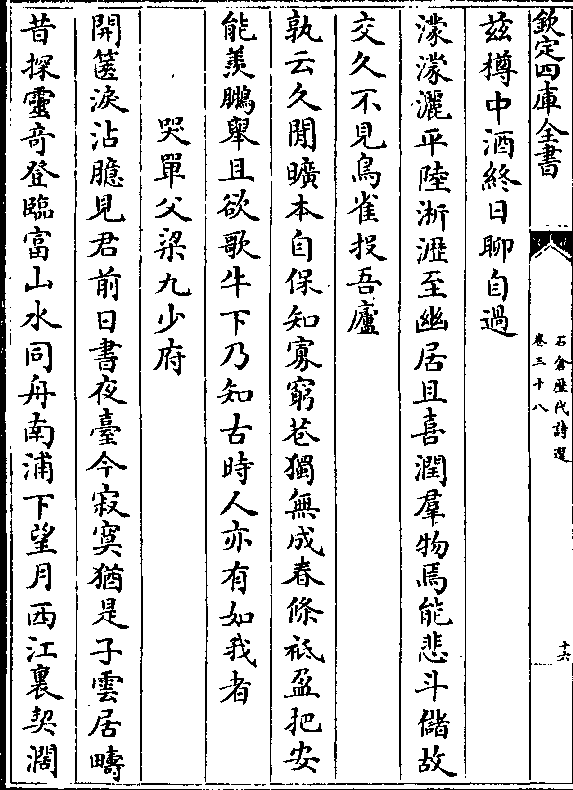 欽定四庫全書
石倉歷代詩選
卷三十八
十六
茲樽中酒終日聊自過
濛濛灑平陸淅瀝至幽居且喜潤羣物焉能悲斗儲故
交久不見鳥雀投吾廬
孰云久閒曠本自保知寡窮巷獨無成春條祗盈把安
能羨鵬舉且欲歌牛下乃知古時人亦有如我者
哭單父梁九少府
開篋淚沾臆見君前日書夜臺今寂寞猶是子雲居疇
昔探靈竒登臨富山水同舟南浦下望月西江裏契闊